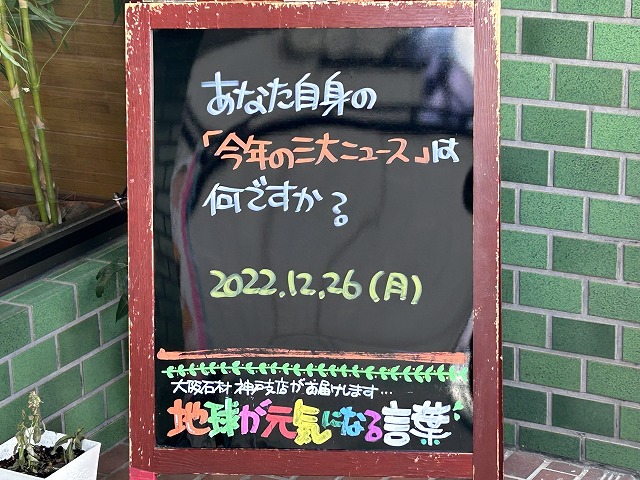 あなた自身の
「今年の三大ニュース」は
何ですか?
2022.12.26(月)
大阪石材 神戸支店がお届けします…
地球が元気になる言葉